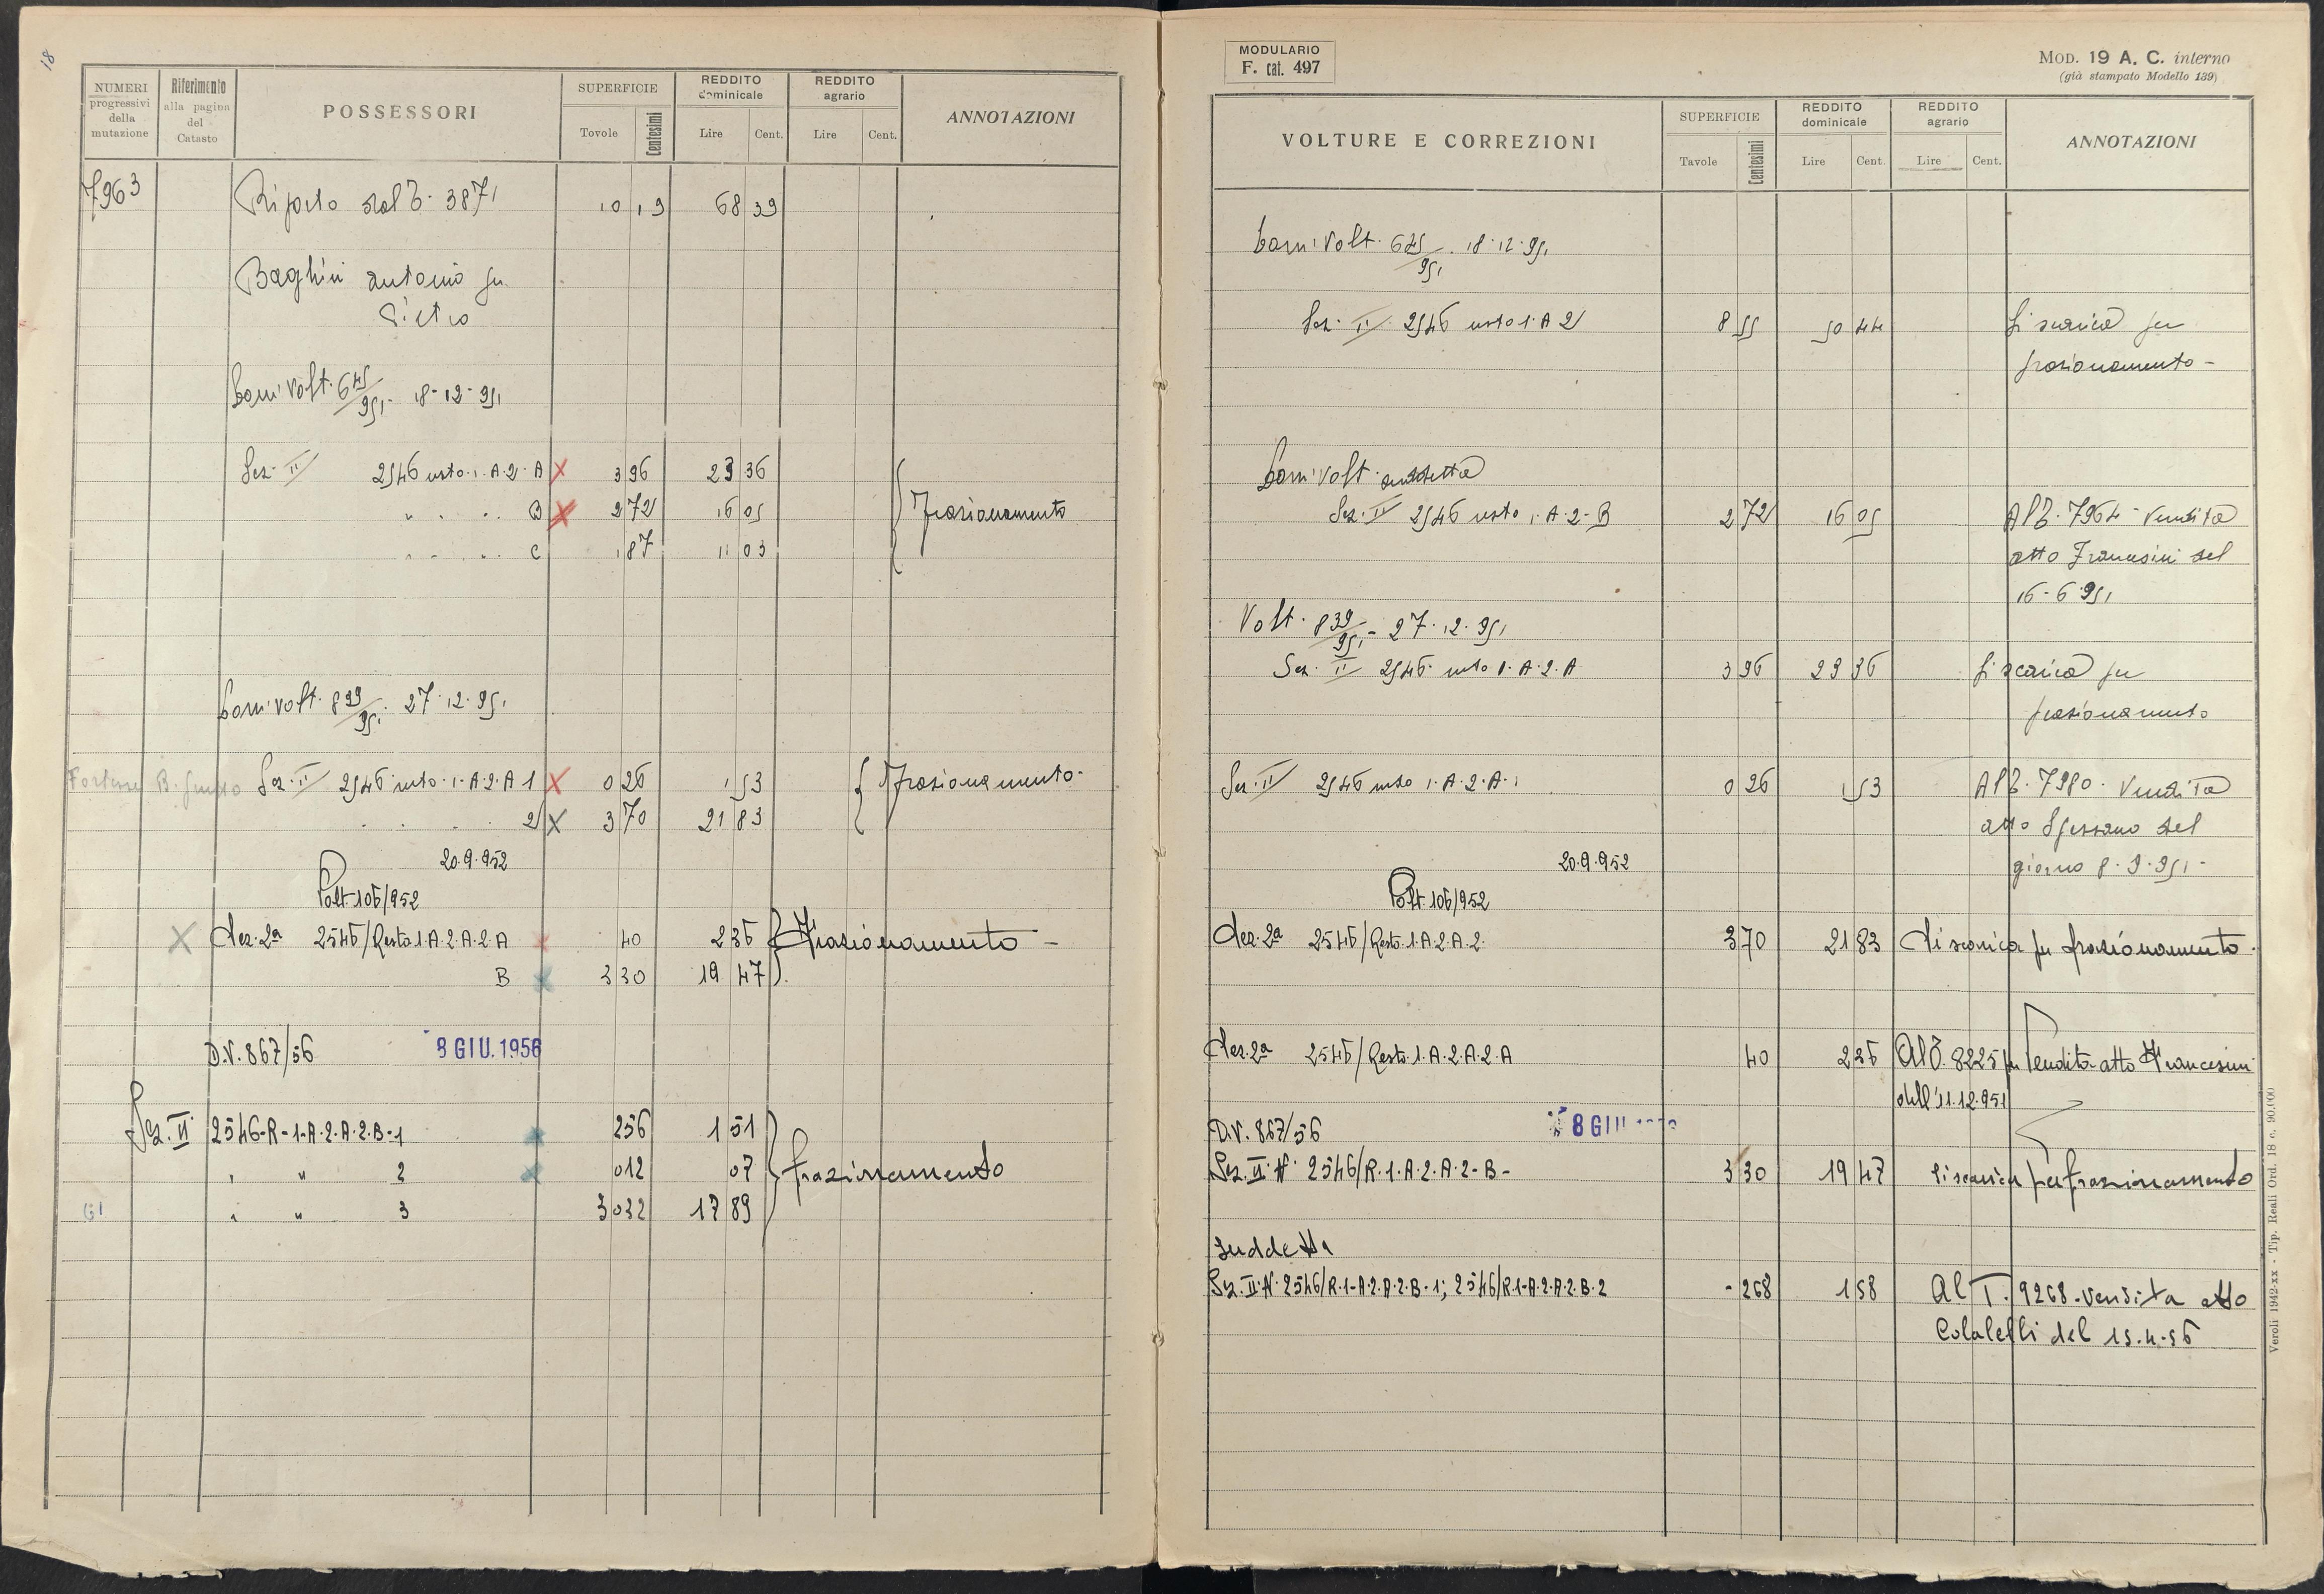 18
NUMERI progressivi della mutazione
Riferimento alla pagina del Catasto
POSSESSORI
SUPERFICIE
Tovole
Centesimi
REDDITO dominicale
Lire
Cent.
REDDITO agrario
Lire
Cent.
ANNOTAZIONI
7963
Riporto dal T. 3871 10 19 68 39
Baghini Antonio fu
Pietro
Com. Volt. 645/951 - 18-12-951
Sez. II 2546 resto 1. A. 2. A X 3 96 23 36
" . . . B X 2 72 16 05 Frazionamento
" . . . C 1 87 11 03
Com. Volt. 839/951. 27.12.951
Sez. II 2546 resto 1. A. 2. A 1 X 0 26 1 53 Frazionamento
. . . . 2 X 3 70 21 83
20.9.952
Volt. 106/952
X Sez. 2a 2546/Resto 1. A. 2. A. 2. A x 40 2 36 Frazionamento -
B x 3 30 19 47
D.V. 867/56 8 GIU. 1956
Sez. II 2546-R-1-A.2.A.2.B-1 256 1 51
" " 2 012 07 frazionamento
" " 3 3 032 17 89
MODULARIO
F. cat. 497
MOD. 19 A. C. interno
(già stampato Modello 139)
VOLTURE E CORREZIONI
SUPERFICIE
Tavole
Centesimi
REDDITO dominicale
Lire
Cent.
REDDITO agrario
Lire
Cent.
ANNOTAZIONI
Com. Volt. 645/951. 18.12.951
Sez. II 2546 resto 1. A 2 8 55 50 44 Si scarica per
frazionamento -
Com. Volt. suddetta
Sez. II 2546 resto 1. A. 2 - B 2 72 16 05 Al T. 7964 - Vendita
atto Francesini del
16-6-951
Volt. 839/951 - 27.12.951
Sez. II 2546 resto 1. A. 2. A 3 96 23 36 Si scarica per
frazionamento
Sez. II 2546 resto 1. A. 2. A. 1 0 26 1 53 Al T. 7980. Vendita
atto
del
giorno 8.9.951 -
20.9.952
Volt. 106/952
Sez. 2a 2546/Resto. 1. A. 2. A. 2. 3 70 21 83 Si scarica per frazionamento.
Sez. 2a 2546/Resto. 1. A. 2. A. 2. A 40 2 36 Al T. 8225 per Vendita atto Francesini
dell'11.12.951
D.V. 867/56 8 GIU
Sez. II N. 2546/R.1.A.2.A.2-B- 3 30 19 47 Si scarica per frazionamento
Suddetta
Sez. II N. 2546/R.1-A.2.A.2.B-1; 2546/R.1-A.2.A.2.B.2 - 268 1 58 Al T. 9268 - Vendita atto
Colalelli del 15.4.56
Veroli 1942-xx - Tip. Reali Ord. 18 c. 90.000